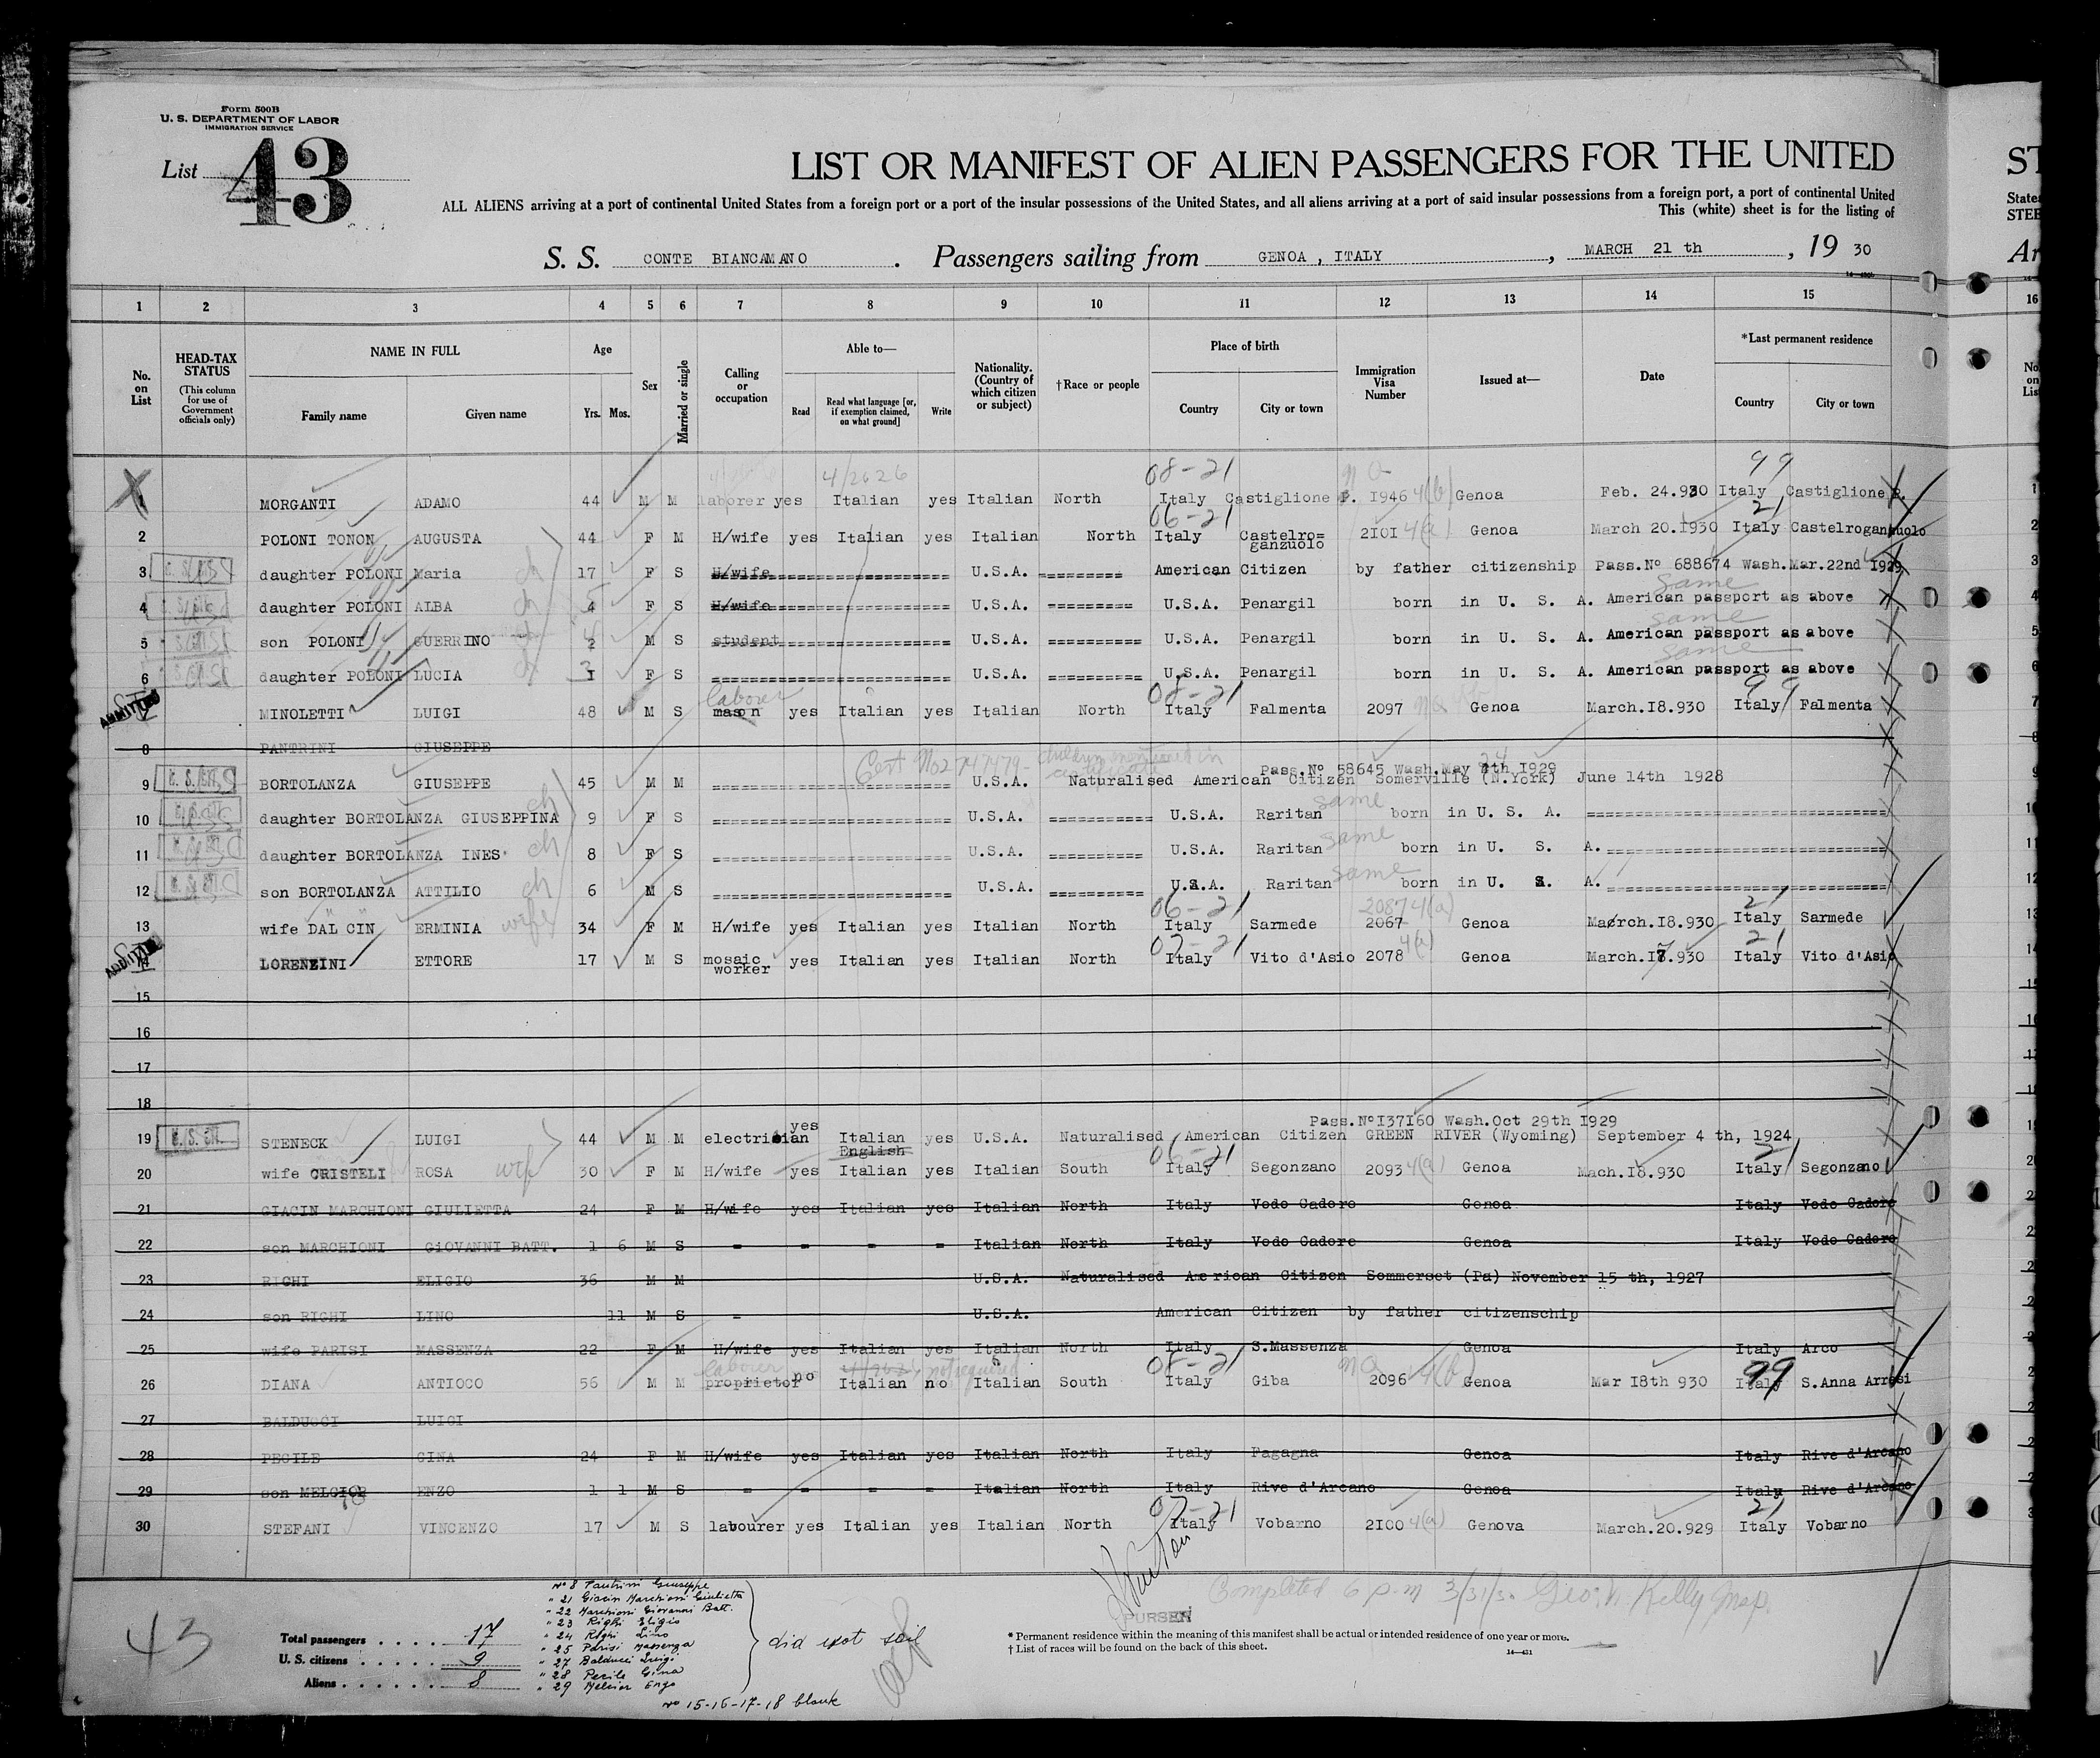 Form 500B
U. S. DEPARTMENT OF LABOR
IMMIGRATION SERVICE
List 43
LIST OR MANIFEST OF ALIEN PASSENGERS FOR THE UNITED
ALL ALIENS arriving at a port of continental United States from a foreign port or a port of the insular possessions of the United States, and all aliens arriving at a port of said insular possessions from a foreign port, a port of continental United
This (white) sheet is for the listing of
S. S. CONTE BIANCAMANO . Passengers sailing from GENOA , ITALY , MARCH 21 th , 19 30
1 2 3 4 5 6 7 8 9 10 11 12 13 14 15
No. on List
HEAD-TAX STATUS (This column for use of Government officials only)
NAME IN FULL
Family name Given name
Age Yrs. Mos.
Sex
Married or single
Calling or occupation
Able to— Read Read what language [or, if exemption claimed, on what ground] Write
Nationality. (Country of which citizen or subject)
†Race or people
Place of birth Country City or town
Immigration Visa Number
Issued at—
Date
*Last permanent residence Country City or town
4/2626 08-21 99
1 MORGANTI ADAMO 44 M M laborer yes Italian yes Italian North Italy Castiglione P. I946 4(b) Genoa Feb. 24.930 Italy Castiglione P.
06-21 21
2 POLONI TONON AUGUSTA 44 F M H/wife yes Italian yes Italian North Italy Castelro=ganzuolo 2IOI 4(a) Genoa March 20.I930 Italy Castelroganzuolo
3 daughter POLONI Maria ch 17 F S H/wife U.S.A. American Citizen by father citizenship Pass.Nº 688674 Wash.Mar.22nd I929
same
4 daughter POLONI ALBA ch F S H/wife U.S.A. U.S.A. Penargil born in U. S. A. American passport as above
same
5 son POLONI GUERRINO M S student U.S.A. U.S.A. Penargil born in U. S. A. American passport as above
same
6 daughter POLONI LUCIA F S U.S.A. U.S.A. Penargil born in U. S. A. American passport as above
ADMITTED laborer 08-21 99
MINOLETTI LUIGI 48 M S mason yes Italian yes Italian North Italy Falmenta 2097 Genoa March.I8.930 Italy Falmenta
8 PANTRINI GIUSEPPE
Cert No 2747479 - children mentioned in
Pass.Nº 58645 Wash.May 1929
9 BORTOLANZA GIUSEPPE 45 M M U.S.A. Naturalised American Citizen Somerville (N.York) June 14th 1928
10 daughter BORTOLANZA GIUSEPPINA ch 9 F S U.S.A. U.S.A. Raritan same born in U. S. A.
11 daughter BORTOLANZA INES ch 8 F S U.S.A. U.S.A. Raritan same born in U. S. A.
12 son BORTOLANZA ATTILIO ch 6 M S U.S.A. U.S.A. Raritan same born in U. S. A.
06-21 2087 4(a) 21
13 wife DAL CIN ERMINIA wife 34 F M H/wife yes Italian yes Italian North Italy Sarmede 2067 Genoa March.I8.930 Italy Sarmede
ADMITTED 07-21 4(a) 21
14 LORENZINI ETTORE 17 M S mosaic worker yes Italian yes Italian North Italy Vito d'Asio 2078 Genoa March.I7.930 Italy Vito d'Asio
15
16
17
18
yes Pass.NºI37I60 Wash.Oct 29th I929
19 STENECK LUIGI 44 M M electrician Italian English yes U.S.A. Naturalised American Citizen GREEN RIVER (Wyoming) September 4 th, 1924
06-21 21
20 wife CRISTELI ROSA wife 30 F M H/wife yes Italian yes Italian South Italy Segonzano 2093 4(a) Genoa Mach.I8.930 Italy Segonzano
21 GIACIN MARCHIONI GIULIETTA 24 F M H/wife yes Italian yes Italian North Italy Vodo Cadore Genoa Italy Vodo Cadore
22 son MARCHIONI GiOVANNI BATT. 1 6 M S - - - - Italian North Italy Vodo Cadore Genoa Italy Vodo Cadore
23 RIGHI ELIGIO 36 M M U.S.A. Naturalised American Citizen Sommerset (Pa) November 15 th, 1927
24 son RIGHI LINO 11 M S - U.S.A. American Citizen by father citizenschip
25 wife PARISI MASSENZA 22 F M H/wife yes Italian yes Italian North Italy S.Massenza Genoa Italy Arco
laborer not required 08-21 4(b) 99
26 DIANA ANTIOCO 56 M M proprietor no Italian no Italian South Italy Giba 2096 Genoa Mar I8th 930 Italy S.Anna Arresi
27 BALDUCCI LUIGI
28 PECILE GINA 24 F M H/wife yes Italian yes Italian North Italy Fagagna Genoa Italy Rive d'Arcano
29 son MELCIOR ENZO 1 1 M S - - - - Italian North Italy Rive d'Arcano Genoa Italy Rive d'Arcano
07-21 21
30 STEFANI VINCENZO 17 M S labourer yes Italian yes Italian North Italy Vobarno 2IOO 4(a) Genova March.20.929 Italy Vobarno
Completed 6 p.m 3/31/30 Geo. Kelly Insp.
PURSER
43
Total passengers . . . . 17
U. S. citizens . . . . . 9
Aliens . . . . . . 8
Nº 8 Pantrini Giuseppe
" 21 Giacin Marchioni Giulietta
" 22 Marchioni Giovanni Batt.
" 23 Righi Eligio
" 24 Righi Lino
" 25 Parisi Massenza
" 27 Balducci Luigi
" 28 Pecile Gina
" 29 Melcior Enzo
did not sail
Nº 15-16-17-18 blank
* Permanent residence within the meaning of this manifest shall be actual or intended residence of one year or more.
† List of races will be found on the back of this sheet.